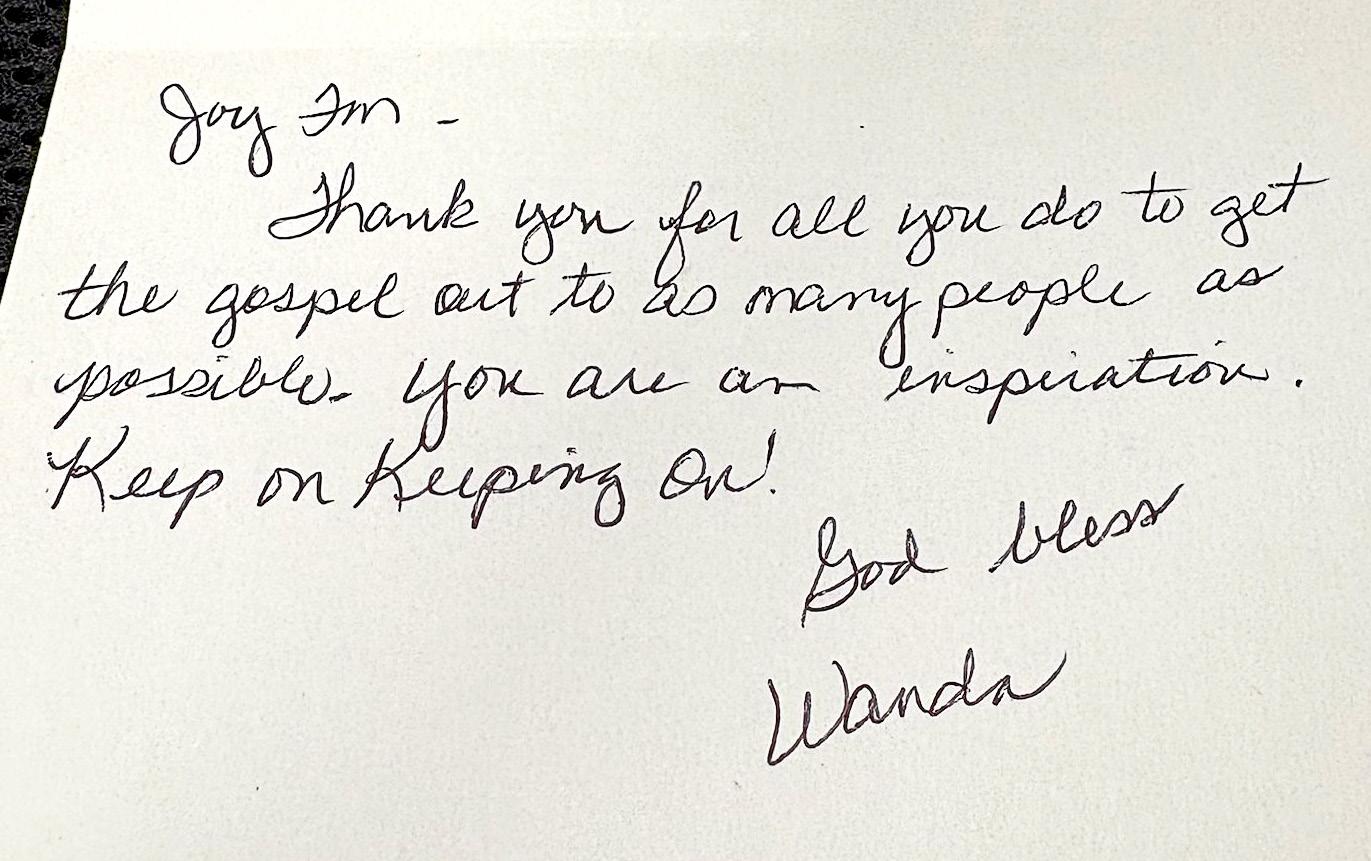 Joy Fm -
Thank you for all you do to get
the gospel out to as many people as
possible. You are an inspiration.
Keep on Keeping On!
God bless
Wanda